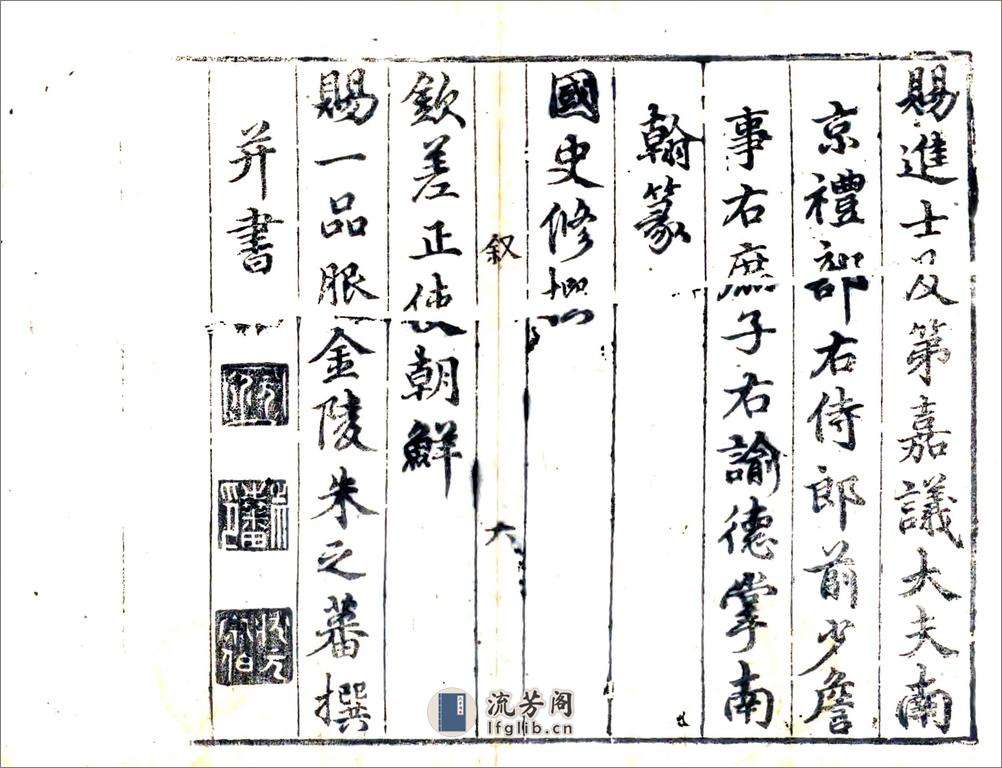 賜進士及第嘉議大夫南
京禮部右侍郎前少詹
事右庶子右諭德掌南
翰篆
國史修撰
叙 六
欽差正使朝鮮
賜一品服金陵朱之蕃撰
并書
朱之蕃印
狀元宗伯
流芳阁
lfglib.cn